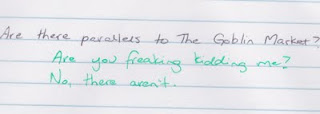 Are there parallels to The Goblin Market?
Are you freaking kidding me?
No, there aren't.